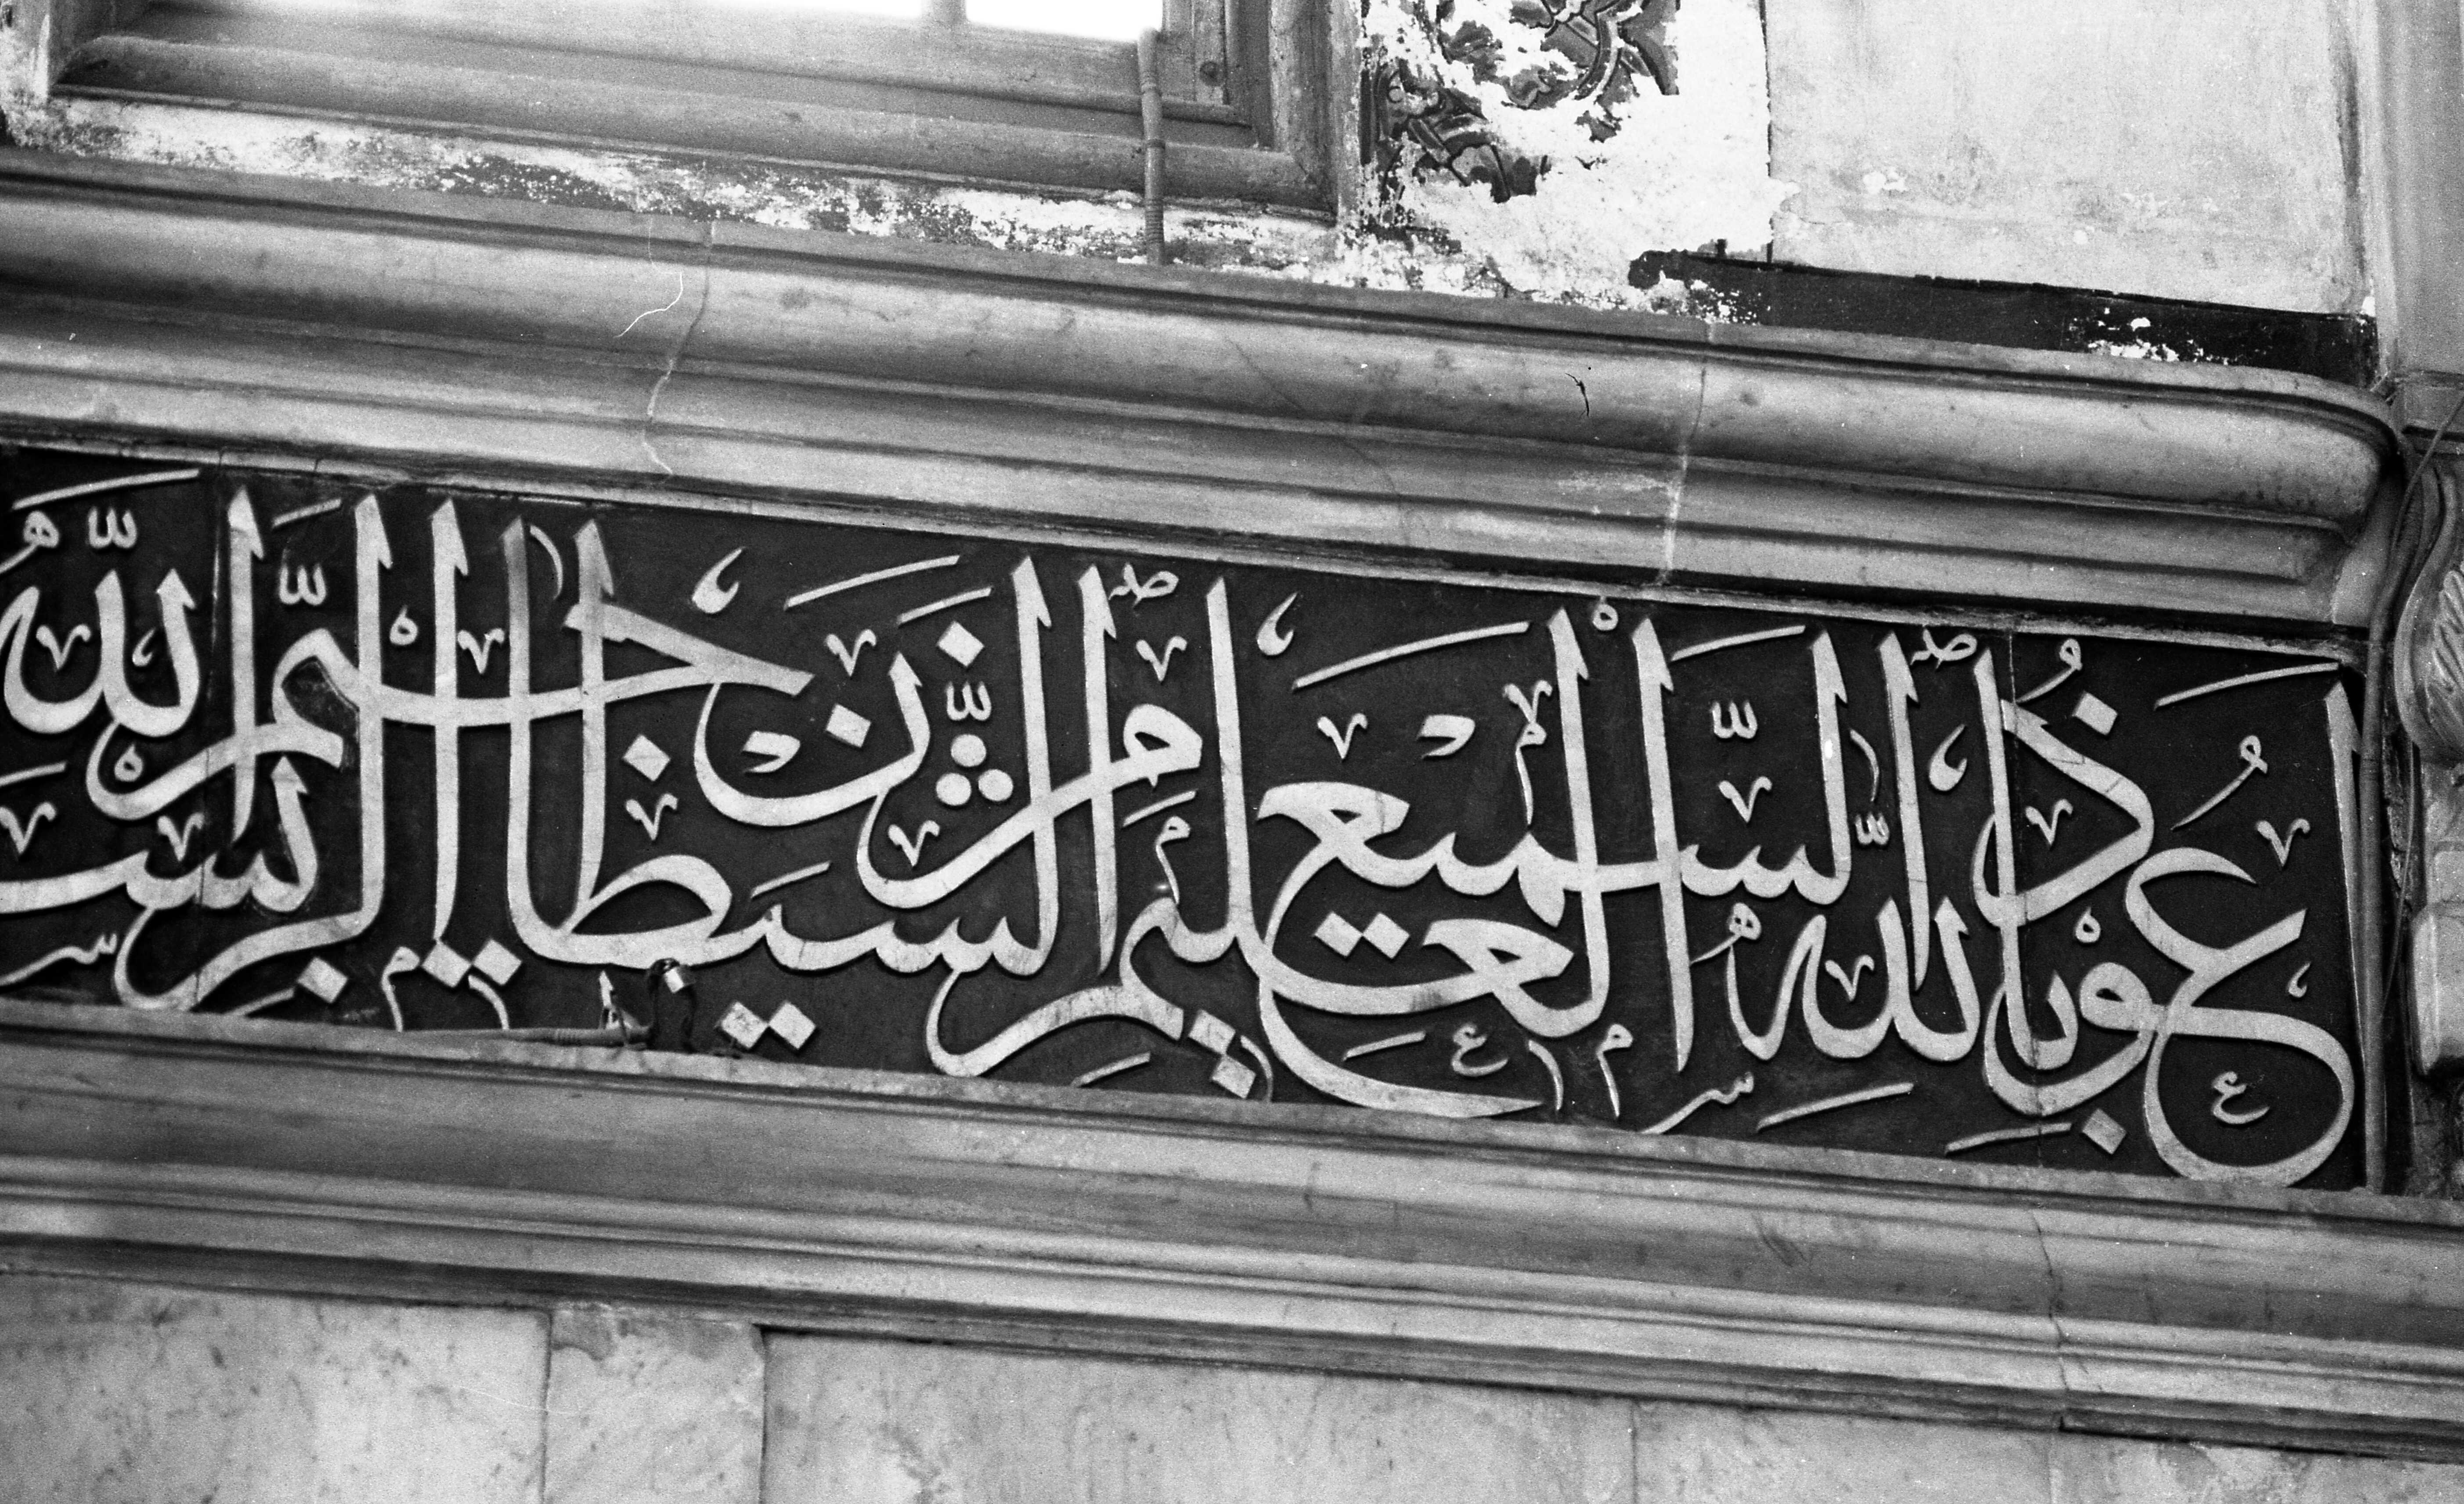 اعوذ بالله السميع العليم من الشيطان الرجيم بسم الله